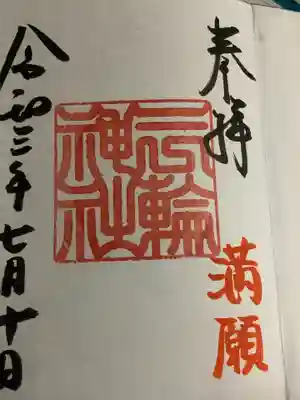 奉拝
満願
三輪
神社
令和三年七月十日